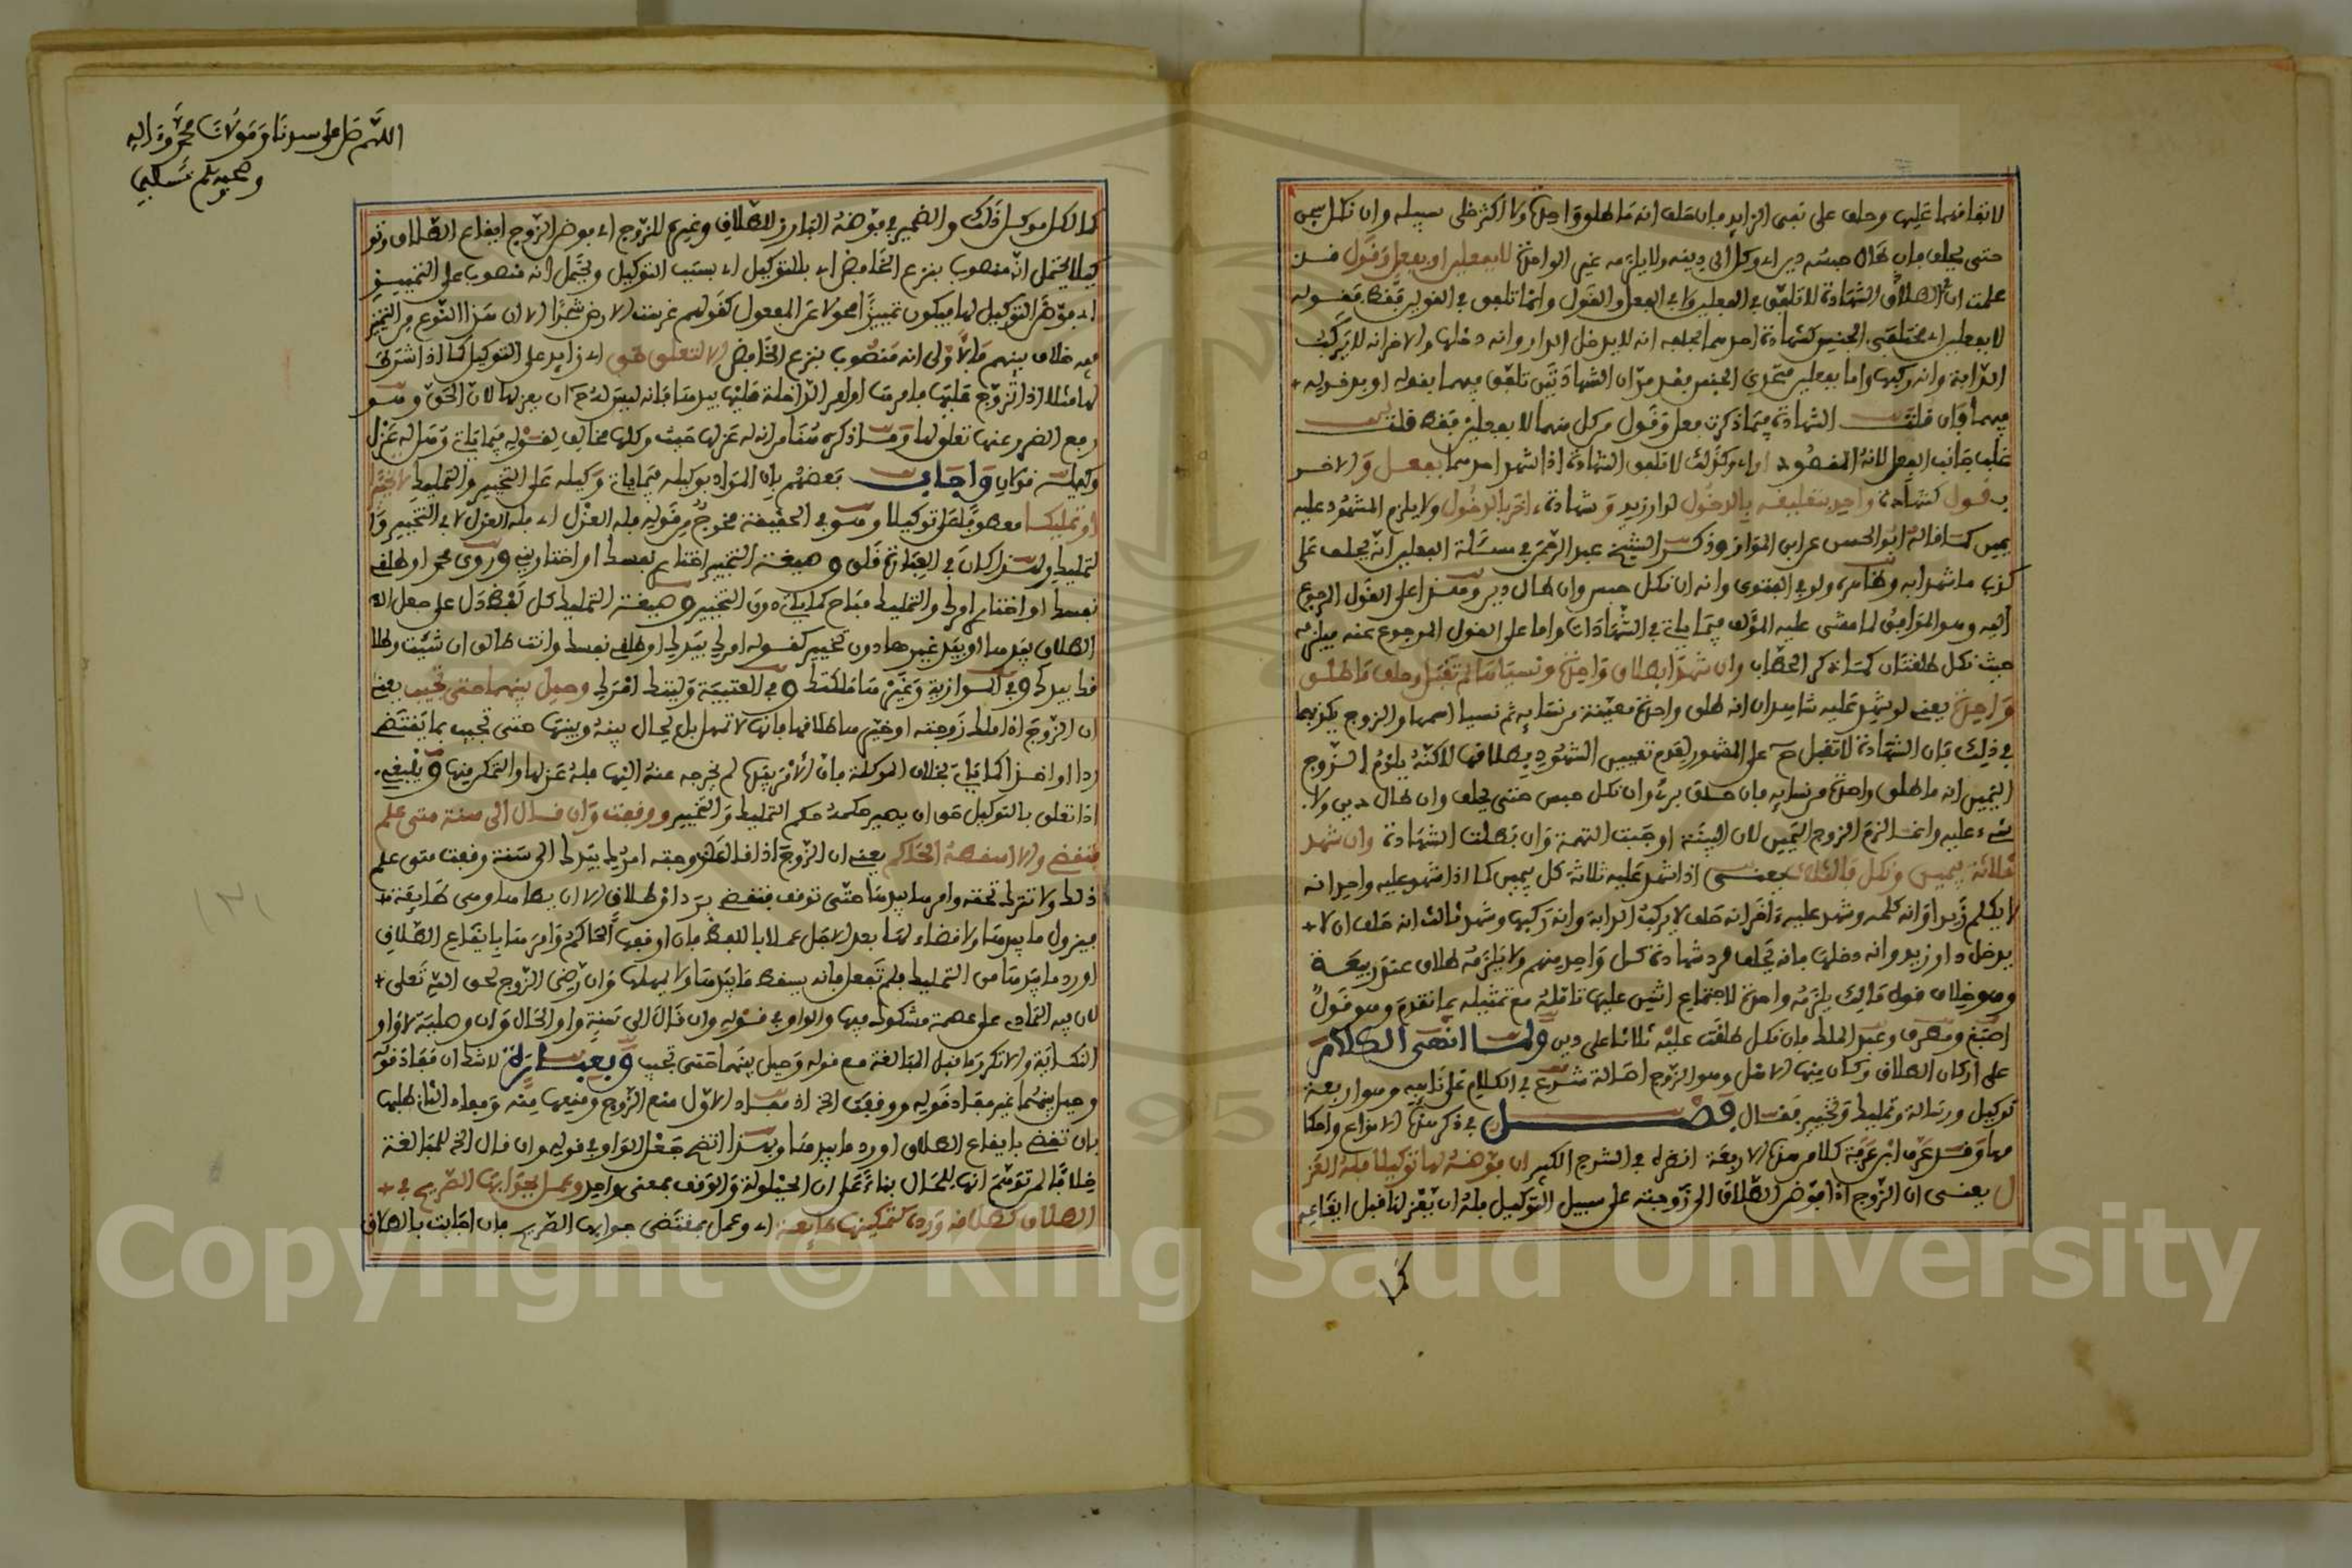 لاتفاقهما عليها وحلف على نفي الزايد فإن حلف انه ما طلق واحدة ولا أكثر خلى سبيله وان نكل سجن
حتى يحلف فإن طال حبسه دين اي وكل الى دينه ولا يلزمه غير الواحدة لا بفعلين او بفعل وقول قد
علمت ان الشهادة لا تلفق في الفعلين ولا في الفعل والقول وانما تلفق في القولين فقط فقوله
لا بفعلين اي مختلفي الجنس كشهادة احدهما بحلفه انه لا يدخل الدار وانه دخلها والاخر انه لا يركب
الدابة وانه ركبها واما بفعلين متحدي الجنس فقد مر ان الشهادتين تلفق فيهما بقوله او بدخوله
فيهما فإن قلت الشهادة فيما ذكرت بفعل وقول من كل منهما لا بفعلين فقط قلت
غلب جانب الفعل لانه المقصود اي وكذلك لا تلفق الشهادة اذا شهد احدهما بفعل والاخر
بقول كشهادة واحد بتعليقه بالدخول لدار زيد وشهادة اخر بالدخول ولا يلزم المشهود عليه
يمين كما قاله ابو الحسن عن ابن المواز وذكر الشيخ عبد الرحمن في مسئلة الفعلين انه يحلف على
كذب ما شهدا به وظاهره ولو في الفتوى وانه ان نكل حبس وان طال دين وهذا على القول المرجوع
اليه وهو الموافق لما مشى عليه المؤلف فيما ياتي في الشهادات واما على القول المرجوع عنه فيلزمه
حيث نكل طلقتان كما ذكر الحطاب وان شهدا بطلاق واحدة ونسياها لم تقبل وحلف ما طلق
واحدة يعني لو شهد عليه شاهدان انه طلق واحدة معينة من نسايه ثم نسيا اسمها والزوج يكذبهما
في ذلك فإن الشهادة لا تقبل ح على المشهور لعدم تعيين الشهود بطلاقها لاكنه يلزم الزوج
اليمين انه ما طلق واحدة من نسايه فإن حلف بريء وان نكل حبس حتى يحلف وان طال دين ولا
شيء عليه وانما لزم الزوج اليمين لان البينة اوجبت التهمة وان بطلت الشهادة وان شهد
ثلاثة بيمين ونكل فالثلاث يعني اذا شهد عليه ثلاثة كل بيمين كما اذا شهد عليه واحد انه
لا يكلم زيدا وانه كلمه وشهد عليه اخر انه حلف لا يركب الدابة وانه ركبها وشهد ثالث انه حلف ان لا
يدخل دار زيد وانه دخلها فانه يحلف لرد شهادة كل واحد منهم ولا يلزمه طلاق عند ربيعة
وهو خلاف قول مالك يلزمه واحدة لاجتماع اثنين عليها تامله مع تمثيله بما تقدم وهو قول
اصبغ ومطرف وعبد الملك فإن نكل طلقت عليه ثلاثا على دين ولما انهى الكلام
على اركان الطلاق وكان منها الاهل وهو الزوج اصالة شرع في الكلام على نايبه وهو اربعة
توكيل ورسالة وتمليك وتخيير فقال فصل في ذكر هذه الانواع واحكا
مها وقد عرف ابن عرفة كلا من هذه الاربعة انظره في الشرح الكبير ان فوضه لها توكيلا فله العز
ل يعني ان الزوج اذا فوض الطلاق الى زوجته على سبيل التوكيل فله ان يعزلها قبل ايقاعه
كما
اللهم صل على سيدنا ومولانا محمد واله
وصحبه وسلم تسليما
كما لكل موكل ذلك والضمير في فوضه البارز للطلاق وغيره للزوج اي فوض الزوج ايقاع الطلاق وتو
كيلا يحتمل انه منصوب بنزع الخافض اي بالتوكيل اي بسبب التوكيل ويحتمل انه منصوب على التمييز
اي فوض التوكيل لها فيكون تمييزا محولا عن المفعول كقولهم غرست الارض شجرا الا ان هذا النوع من التمييز
فيه خلاف بينهم فالاولى انه منصوب بنزع الخافض الا لتعلق حق اي زايد على التوكيل كما اذا شرط
لها مثلا اذا تزوج عليها فامرها او امر الداخلة عليها بيدها فانه ليس له ح ان يعزلها لان الحق وهو
رفع الضرر عنها تعلق لها وما ذكره هنا من ان له عزلها حيث وكلها مخالف لقوله فيما ياتي وهل له عزل
وكيله قولان واجاب بعضهم بان المراد بوكيله فيما ياتي وكيله على التخيير والتمليك لا تخييرا
او تمليكا معطوف على توكيلا وهو في الحقيقة مخرج من قوله فله العزل اي فله العزل لا في التخيير وا
لتمليك ولهذا كان في العبارة قلق وصيغة التخيير اختاري نفسك او اختاريني وروى محمد او طلقي
نفسك او اختاري امرك والتمليك مباح كما ياتي دون التخيير وصيغة التمليك كل لفظ دل على جعل الله
الطلاق بيدها او بيد غيرها دون تخيير كقوله امرك بيدك او طلقي نفسك وانت طالق ان شئت وطلا
قك بيدك وفي الموازية وغيرها ملكتك وفي العتبية وليتك امرك وحيل بينهما حتى تجيب يعني
ان الزوج اذا ملك زوجته او خيرها طلاقها فانها لا تمهل بل يحال بينه وبينها حتى تجيب بما يقتضي
ردا او اخذا كما ياتي بخلاف الموكلة فان الامر بيدها لم يخرجه عنه اليها فله عزلها والتمكن منها وينبغي
اذا تعلق بالتوكيل حق ان يصير حكمه حكم التمليك والتخيير ووقفت وان قال الى سنة متى علم
فتقضي والا اسقطه الحاكم يعني ان الزوج اذا قال لزوجته امرك بيدك الى سنة وقفت متى علم
ذلك ولا تترك تحته وامرها بيدها حتى توقف فتقضي برد او طلاق الا ان يطاها وهي طايعة
فيزول ما بيدها ولا قضاء لها بعد الاجل عملا باللفظ فإن اوقفها الحاكم وامرها بايقاع الطلاق
او رد ما بيدها من التمليك فلم تفعل فانه يسقط ما بيدها ولا يمهلها وان رضي الزوج لحق الله تعلى
لان فيه التمادي على عصمة مشكوك فيها والواو في قوله وان قال الى سنة واو الحال وان وصلية لا واو
النكاية والا تكرر ما قبل المبالغة مع قوله وحيل بينهما حتى تجيب وبعبارة لا شك ان مفاد قوله
وحيل بينهما غير مفاد قوله ووقفت الخ اذ مفاد الاول منع الزوج ومنعها منه ومفاد الثاني طلبها
بان تقضي بايقاع الطلاق او رد ما بيدها وبهذا اتضح جعل الواو في قوله وان قال الخ للمبالغة
خلافا لمن توهم انها للحال بناء على ان الحيلولة والوقف بمعنى واحد وعمل بجوابها الصريح في
الطلاق كطلاقه ورده كتمكينها طايعة اي وعمل بمقتضى جوابها الصريح فإن اجابت بالطلاق
Copyright © King Saud University